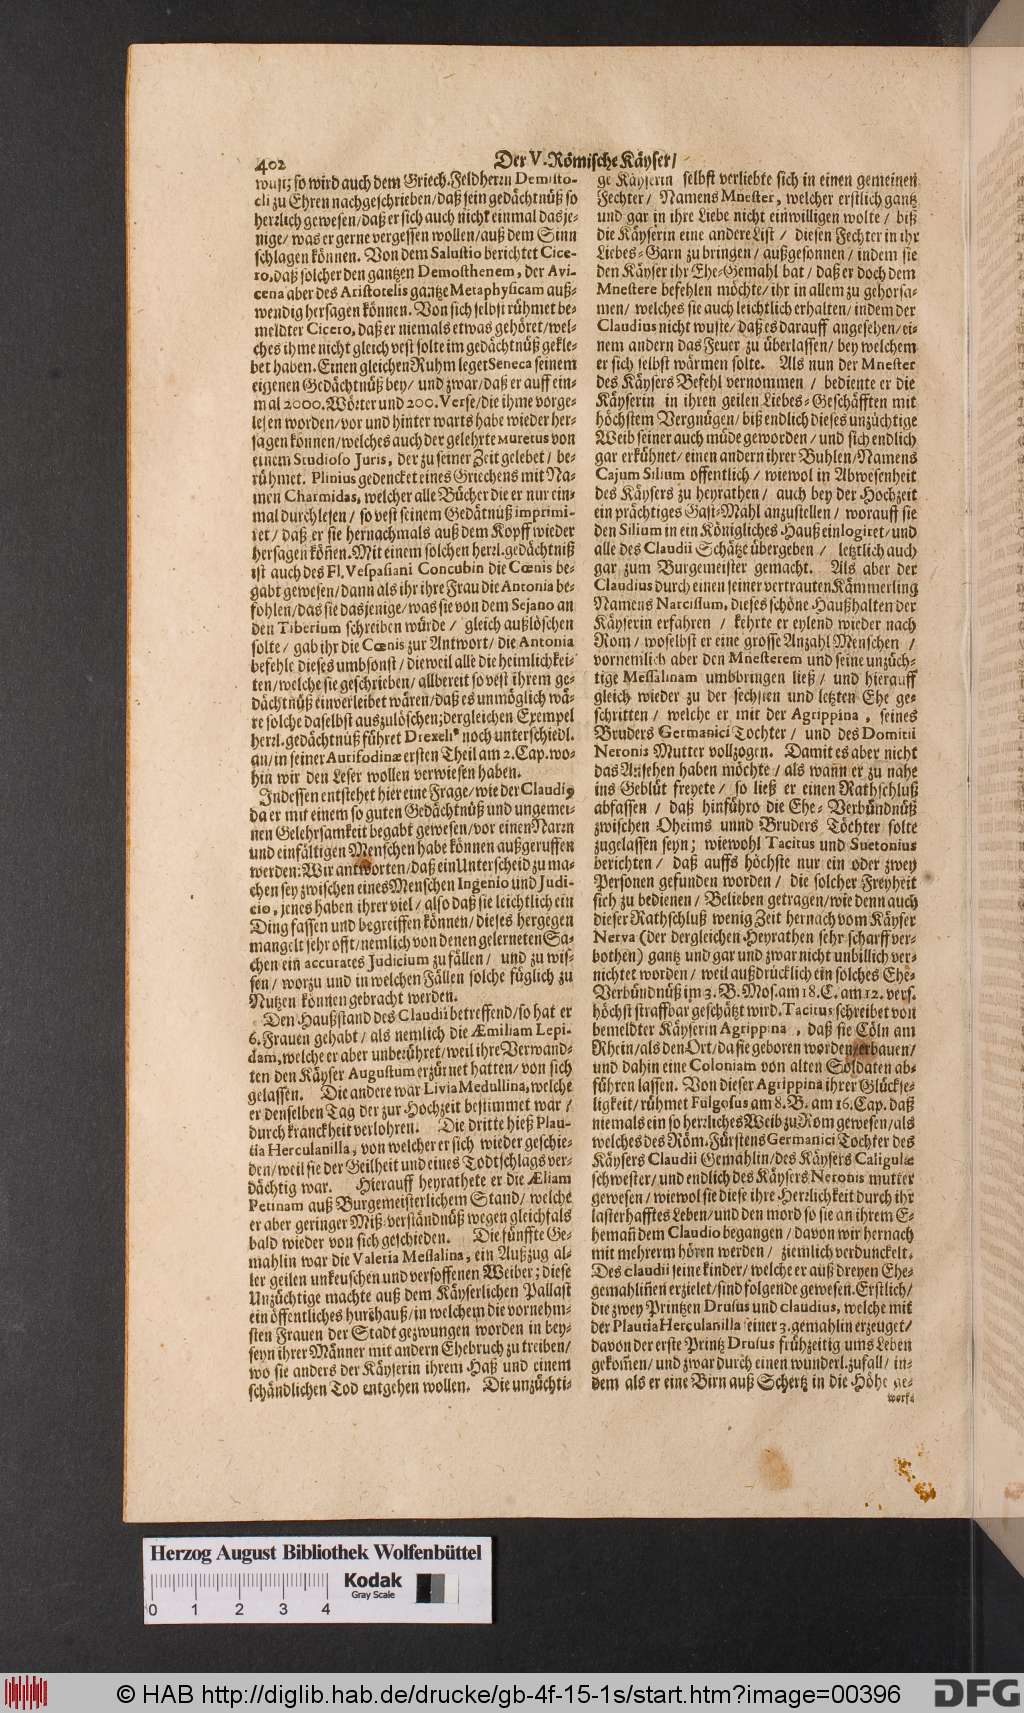 402
Der V. Römische Käyser/
wust; so wird auch dem Griech. Feldherrn Demisto-
cli zu Ehren nachgeschrieben/ daß sein gedächtnüß so
herrlich gewesen/ daß er sich auch nicht einmal das je-
nige/ was er gerne vergessen wollen/ auß dem Sinn
schlagen können. Von dem Salustio berichtet Cice-
ro, daß solcher den gantzen Demosthenem, der Avi-
cena aber des Aristotelis gantze Metaphysicam auß-
wendig hersagen können. Von sich selbst rühmet be-
meldter Cicero, daß er niemals etwas gehöret/ wel-
ches ihme nicht gleich vest solte im gedächtnüß gekle-
bet haben. Einen gleichen Ruhm leget Seneca seinem
eigenen Gedächtnüß bey/ und zwar/ daß er auff ein-
mal 2000. Wörter und 200. Verse/ die ihme vorge-
lesen worden/ vor und hinter warts habe wieder her-
sagen können/ welches auch der gelehrte Muretus von
einem Studioso Juris, der zu seiner Zeit gelebet/ be-
rühmet. Plinius gedencket eines Griechens mit Na-
men Charmidas, welcher alle Bücher die er nur ein-
mal durchlesen/ so vest seinem Gedätnüß imprimi-
ret/ daß er sie hernachmals auß dem Kopff wieder
hersagen köñen. Mit einem solchen herrl. gedächtniß
ist auch des Fl. Vespasiani Concubin die Cœnis be-
gabt gewesen/ dann als ihr ihre Frau die Antonia be-
fohlen/ das sie dasjenige/ was sie von dem Sejano an
den Tiberium schreiben würde/ gleich außlöschen
solte/ gab ihr die Cœnis zur Antwort/ die Antonia
befehle dieses umbsonst/ dieweil alle die heimlichkei-
ten/ welche sie geschrieben/ allbereit so vest ihrem ge-
dächtnüß einverleibet wären/ daß es unmöglich wä-
re solche daselbst auszulöschen; dergleichen Exempel
herrl. gedächtnüß führet Drexeli9 noch unterschiedl.
an/ in seiner Aurifodinæ ersten Theil am 2. Cap. wo-
hin wir den Leser wollen verwiesen haben.
Indessen entstehet hier eine Frage/ wie der Claudi9
da er mit einem so guten Gedächtnüß und ungemei-
nen Gelehrsamkeit begabt gewesen/ vor einen Narrn
und einfältigen Menschen habe können außgeruffen
werden: Wir antworten/ daß ein Unterscheid zu ma-
chen sey zwischen eines Menschen Ingenio und Judi-
cio, jenes haben ihrer viel/ also daß sie leichtlich ein
Ding fassen und begreiffen können/ dieses hergegen
mangelt sehr offt/ nemlich von denen gelerneten Sa-
chen ein accurates Judicium zu fällen/ und zu wis-
sen/ worzu und in welchen Fällen solche füglich zu
Nutzen können gebracht werden.
Den Haußstand des Claudii betreffend/ so hat er
6. Frauen gehabt/ als nemlich die Æmiliam Lepi-
dam, welche er aber unberühret/ weil ihre Verwand-
ten den Käyser Augustum erzürnet hatten/ von sich
gelassen. Die andere war Livia Medullina, welche
er denselben Tag der zur Hochzeit bestimmet war/
durch kranckheit verlohren. Die dritte hieß Plau-
tia Herculanilla, von welcher er sich wieder geschie-
den/ weil sie der Geilheit und eines Todtschlags ver-
dächtig war. Hierauff heyrathete er die Æliam
Petinam auß Burgemeisterlichem Stand/ welche
er aber geringer Miß-verständnüß wegen gleichfals
bald wieder von sich geschieden. Die fünffte Ge-
mahlin war die Valeria Messalina, ein Außzug al-
ler geilen unkeuschen und versoffenen Weiber; diese
Unzüchtige machte auß dem Käyserlichen Pallast
ein öffentliches hurẽhauß/ in welchem die vornehm-
sten Frauen der Stadt gezwungen worden in bey-
seyn ihrer Männer mit andern Ehebruch zu treiben/
wo sie anders der Käyserin ihrem Haß und einem
schändlichen Tod entgehen wollen. Die unzüchti-
ge Käyserin selbst verliebte sich in einen gemeinen
Fechter/ Namens Mnester, welcher erstlich gantz
und gar in ihre Liebe nicht einwilligen wolte/ biß
die Käyserin eine andere List/ diesen Fechter in ihr
Liebes-Garn zu bringen/ außgesonnen/ indem sie
den Käyser ihr Ehe-Gemahl bat/ daß er doch dem
Mnestere befehlen möchte/ ihr in allem zu gehorsa-
men/ welches sie auch leichtlich erhalten/ indem der
Claudius nicht wuste/ daß es darauff angesehen/ ei-
nem andern das Feuer zu überlassen/ bey welchem
er sich selbst wärmen solte. Als nun der Mnester
des Käysers Befehl vernommen/ bediente er die
Käyserin in ihren geilen Liebes-Geschäfften mit
höchstem Vergnügen/ biß endlich dieses unzüchtige
Weib seiner auch müde geworden/ und sich endlich
gar erkühnet/ einen andern ihrer Buhlen/ Namens
Cajum Silium offentlich/ wiewol in Abwesenheit
des Käysers zu heyrathen/ auch bey der Hochzeit
ein prächtiges Gast-Mahl anzustellen/ worauff sie
den Silium in ein Königliches Hauß einlogiret/ und
alle des Claudii Schätze übergeben/ letztlich auch
gar zum Burgemeister gemacht. Als aber der
Claudius durch einen seiner vertrauten Kämmerling
Namens Narcissum, dieses schöne Haußhalten der
Käyserin erfahren/ kehrte er eylend wieder nach
Rom/ woselbst er eine grosse Anzahl Menschen/
vornemlich aber den Mnesterem und seine unzüch-
tige Messalinam umbbringen ließ/ und hierauff
gleich wieder zu der sechsten und letzten Ehe ge-
schritten/ welche er mit der Agrippina, seines
Bruders Germanici Tochter/ und des Domitii
Neronis Mutter vollzogen. Damit es aber nicht
das Ansehen haben möchte/ als wann er zu nahe
ins Geblüt freyete/ so ließ er einen Rathschluß
abfassen/ daß hinführo die Ehe-Verbündnüß
zwischen Oheims unnd Bruders Töchter solte
zugelassen seyn; wiewohl Tacitus und Suetonius
berichten/ daß auffs höchste nur ein oder zwey
Personen gefunden worden/ die solcher Freyheit
sich zu bedienen/ Belieben getragen/ wie denn auch
dieser Rathschluß wenig Zeit hernach vom Käyser
Nerva (der dergleichen Heyrathen sehr scharff ver-
bothen) gantz und gar und zwar nicht unbillich ver-
nichtet worden/ weil außdrücklich ein solches Ehe-
Verbündnüß im 3. B. Mos. am 18. C. am 12. vers.
höchst straffbar geschätzt wird. Tacitus schreibet von
bemeldter Käyserin Agrippina, daß sie Cöln am
Rhein/ als den Ort/ da sie geboren worden/ erbauen/
und dahin eine Coloniam von alten Soldaten ab-
führen lassen. Von dieser Agrippina ihrer Glückse-
ligkeit/ rühmet Fulgosus am 8. B. am 16. Cap. daß
niemals ein so herrliches Weib zu Rom gewesen/ als
welches des Röm. Fürstens Germanici Tochter des
Käysers Claudii Gemahlin/ des Käysers Caligulæ
schwester/ und endlich des Käysers Neronis mutter
gewesen/ wiewol sie diese ihre Herrlichkeit durch ihr
lasterhafftes Leben/ und den mord so sie an ihrem E-
hemañ dem Claudio begangen/ davon wir hernach
mit mehrerm hören werden/ ziemlich verdunckelt.
Des Claudii seine kinder/ welche er auß dreyen Ehe-
gemahliñen erzielet/ sind folgende gewesen. Erstlich/
die zwey Printzen Drusus und Claudius, welche mit
der Plautia Herculanilla seiner 3. gemahlin erzeuget/
davon der erste Printz Drusus frühzeitig ums Leben
gekom̃en/ und zwar durch einen wunderl. zufall/ in-
dem als er eine Birn auß Schertz in die Höhe ge-
worf-
Herzog August Bibliothek Wolfenbüttel
Kodak
Gray Scale
0 1 2 3 4
© HAB http://diglib.hab.de/drucke/gb-4f-15-1s/start.htm?image=00396
DFG